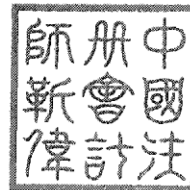 中國注
冊會計
師靳偉